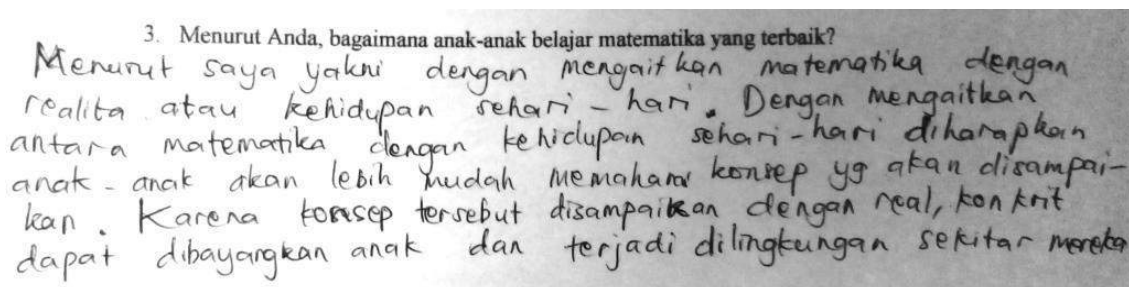 3. Menurut Anda, bagaimana anak-anak belajar matematika yang terbaik?
Menurut saya yakni dengan mengaitkan matematika dengan
realita atau kehidupan sehari-hari. Dengan mengaitkan
antara matematika dengan kehidupan sehari-hari diharapkan
anak-anak akan lebih mudah memahami konsep yg akan disampai-
kan. Karena konsep tersebut disampaikan dengan real, konkrit
dapat dibayangkan anak dan terjadi dilingkungan sekitar mereka